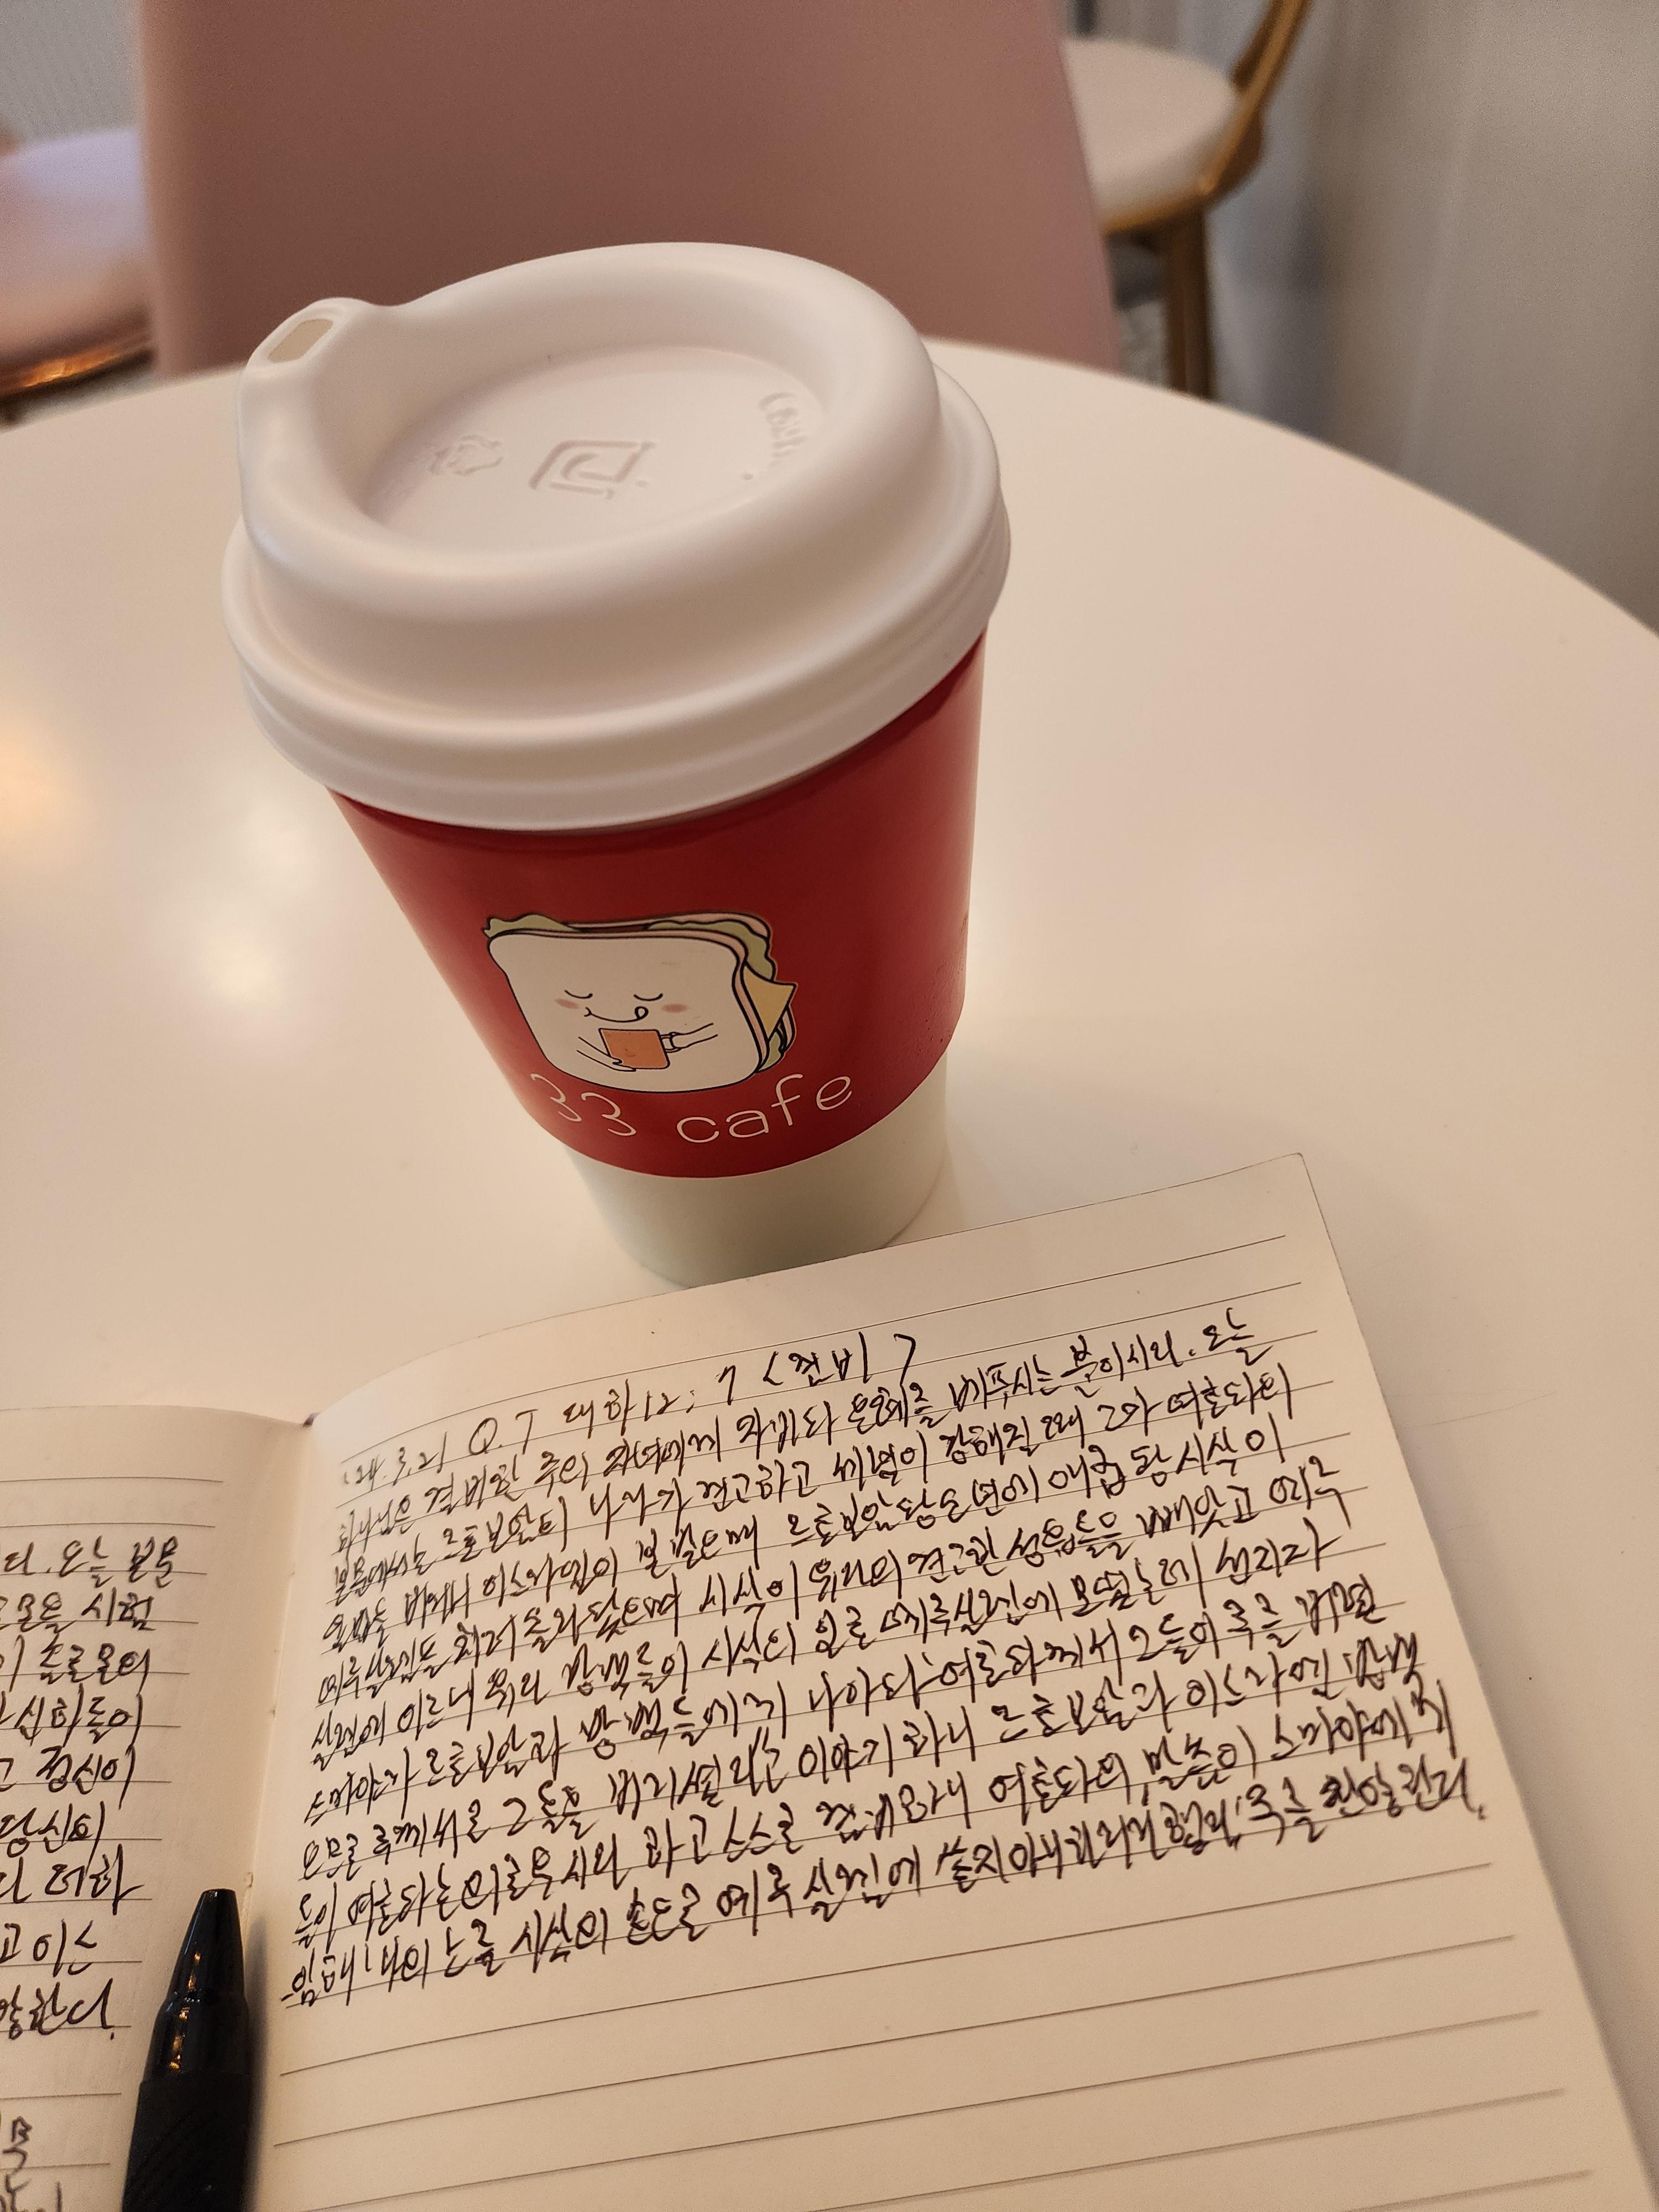 33 cafe
'24.3.21 Q.T 대하12:7 <겸비>
하나님은 겸비한 주의 자녀에게 자비와 은혜를 베푸시는 분이시라. 오늘
본문에서는 르호보암이 나라가 견고하고 세력이 강해질 때 그가 여호와의
율법을 버리니 이스라엘이 본받으매 르호보암왕 오년에 애굽 왕 시삭이
예루살렘을 치러 올라왔으며 시삭이 유다의 견고한 성읍들을 빼앗고 예루
살렘에 이르니 유다 방백들이 시삭의 일로 예루살렘에 모였는데 선지자
스마야가 르호보암과 방백들에게 나아와 여호와께서 그들이 주를 버렸
으므로 주께서도 그들을 버리셨다고 이야기하니 르호보암과 이스라엘 방백
들이 여호와는 의로우시다 하고 스스로 겸비하니 여호와의 말씀이 스마야에게
임해 '나의 노를 시삭의 손으로 예루살렘에 쏟지 아니하리라' 주를 찬양한다.
다. 오늘 본문
시험
솔로몬이
신하들이
정신이
당신의
더하
고 이스
양한다.